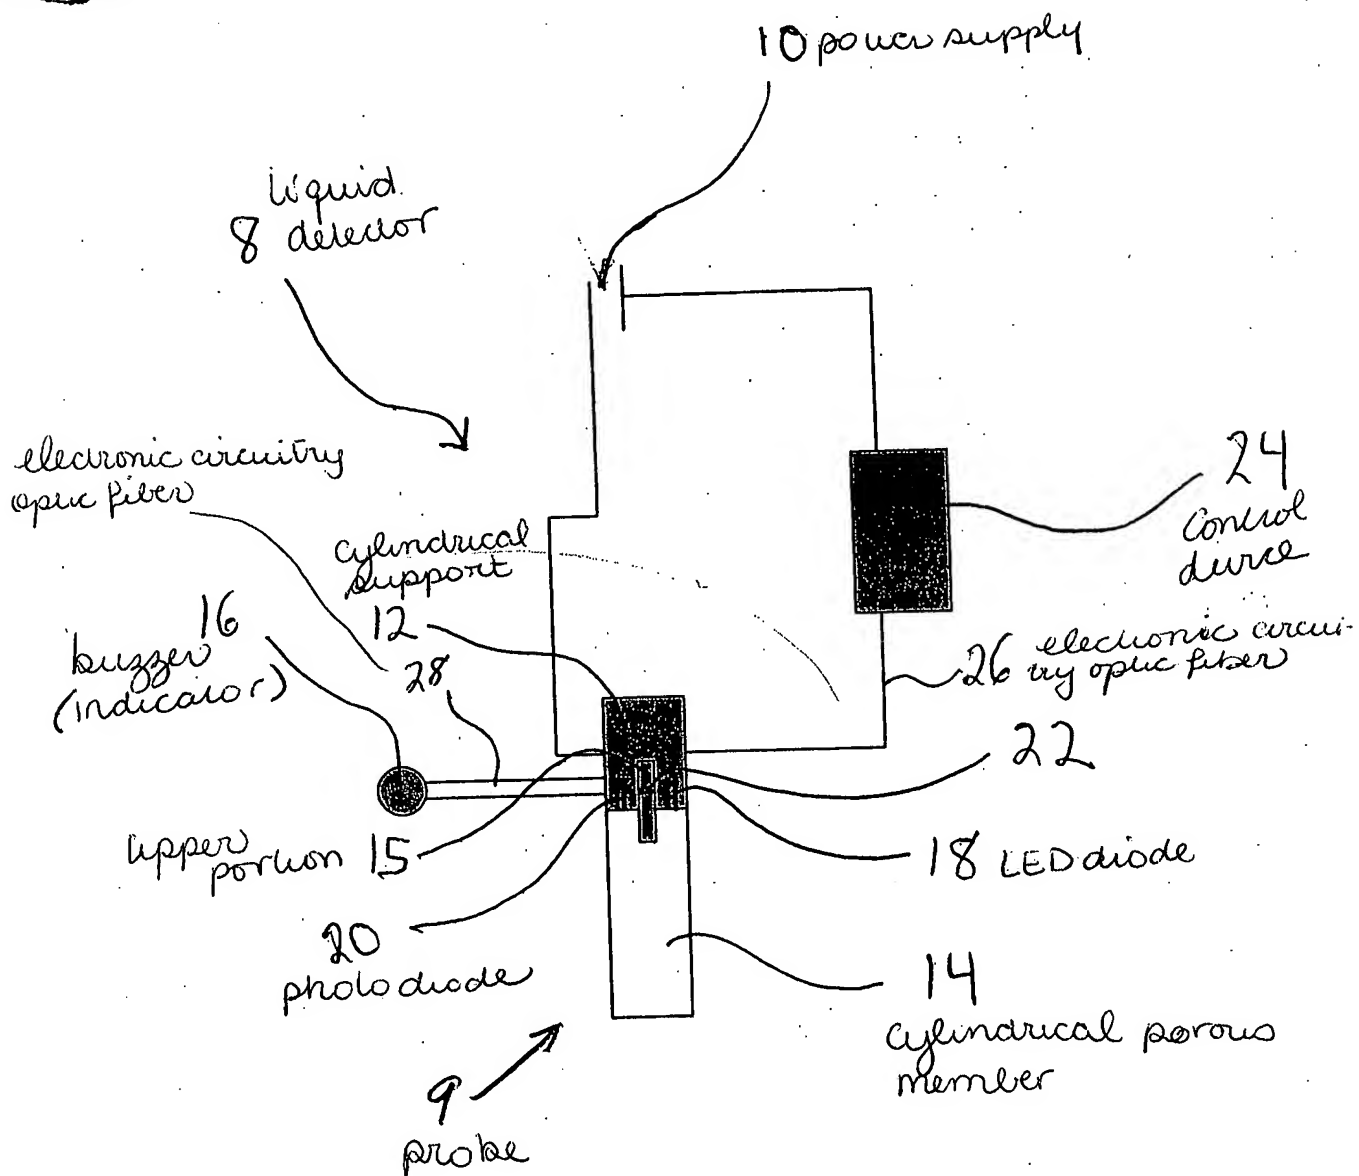 10 power supply
liquid
8 detector
electronic circuitry
optic fiber
cylindrical
support
12
24
control
device
16
buzzer
(indicator)
28
26 electronic circui-
try optic fiber
22
upper
portion 15
18 LED diode
20
photodiode
14
cylindrical porous
member
9
probe